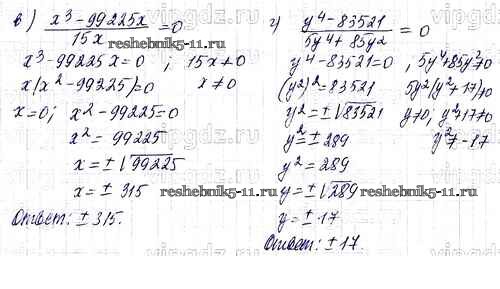 в) x³-99225x / 15x =0
x³-99225x=0 ; 15x≠0
x(x²-99225)=0 x≠0
x=0; x²-99225=0
x²= 99225
x=±√99225
x=± 315
Ответ: ±315.
г) y⁴-83521 / 5y⁴+85y² = 0
y⁴-83521=0 , 5y⁴+85y²≠0
(y²)²=83521 5y²(y²+17)≠0
y²=±√83521 y≠0, y²+17≠0
y²=± 289 y²≠-17
y²=289
y=±√289
y=±17
Ответ: ±17.
reshebnik5-11.ru
reshebnik5-11.ru
reshebnik5-11.ru
vipgdz.ru
vipgdz.ru
vipgdz.ru